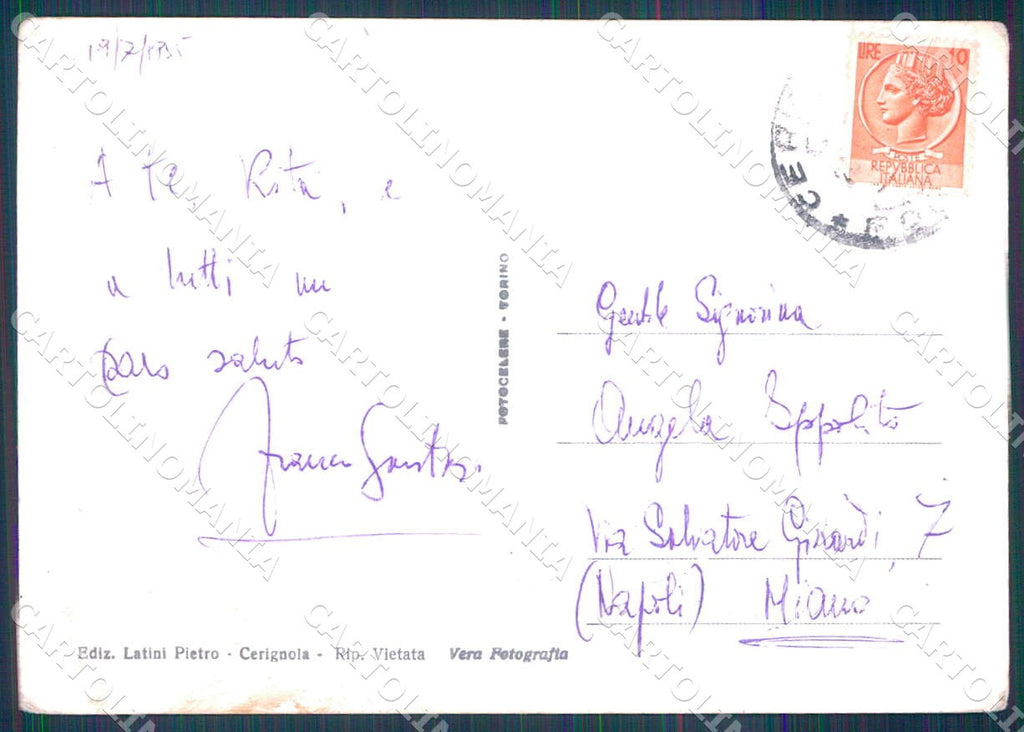 A te Rita, e
a tutti un
caro saluto
LIRE 10
POSTE
REPVBBLICA
ITALIANA
CER
FOTOCELERE - TORINO
Gentile Signorina
Angela Ippolito
Via Salvatore Girardi, 7
(Napoli) Miano
Ediz. Latini Pietro - Cerignola - Rip. Vietata Vera Fotografia
CARTOLINOMANIA